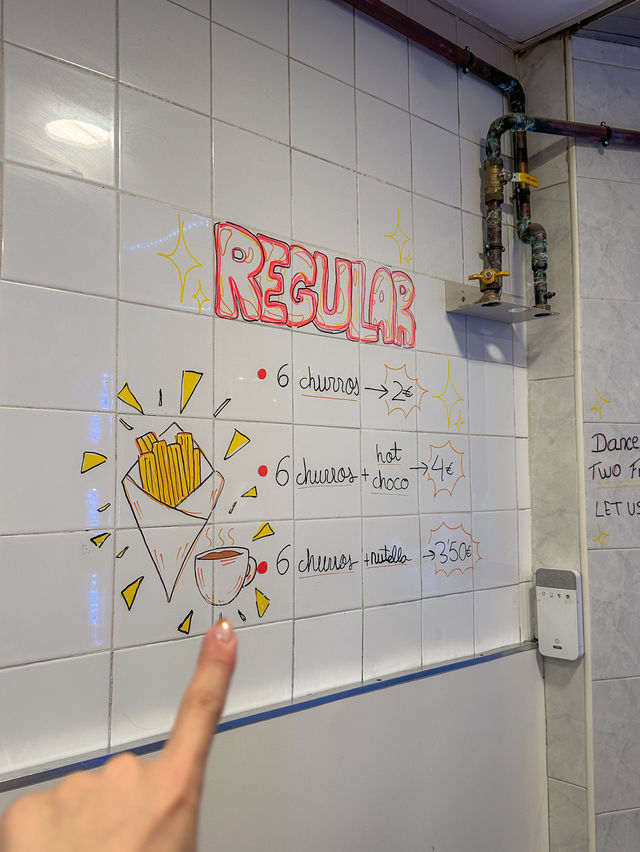 REGULAR
• 6 churros → 2€
• 6 churros + hot choco → 4€
• 6 churros + nutella → 3'50€
Dance
Two Fr
LET US